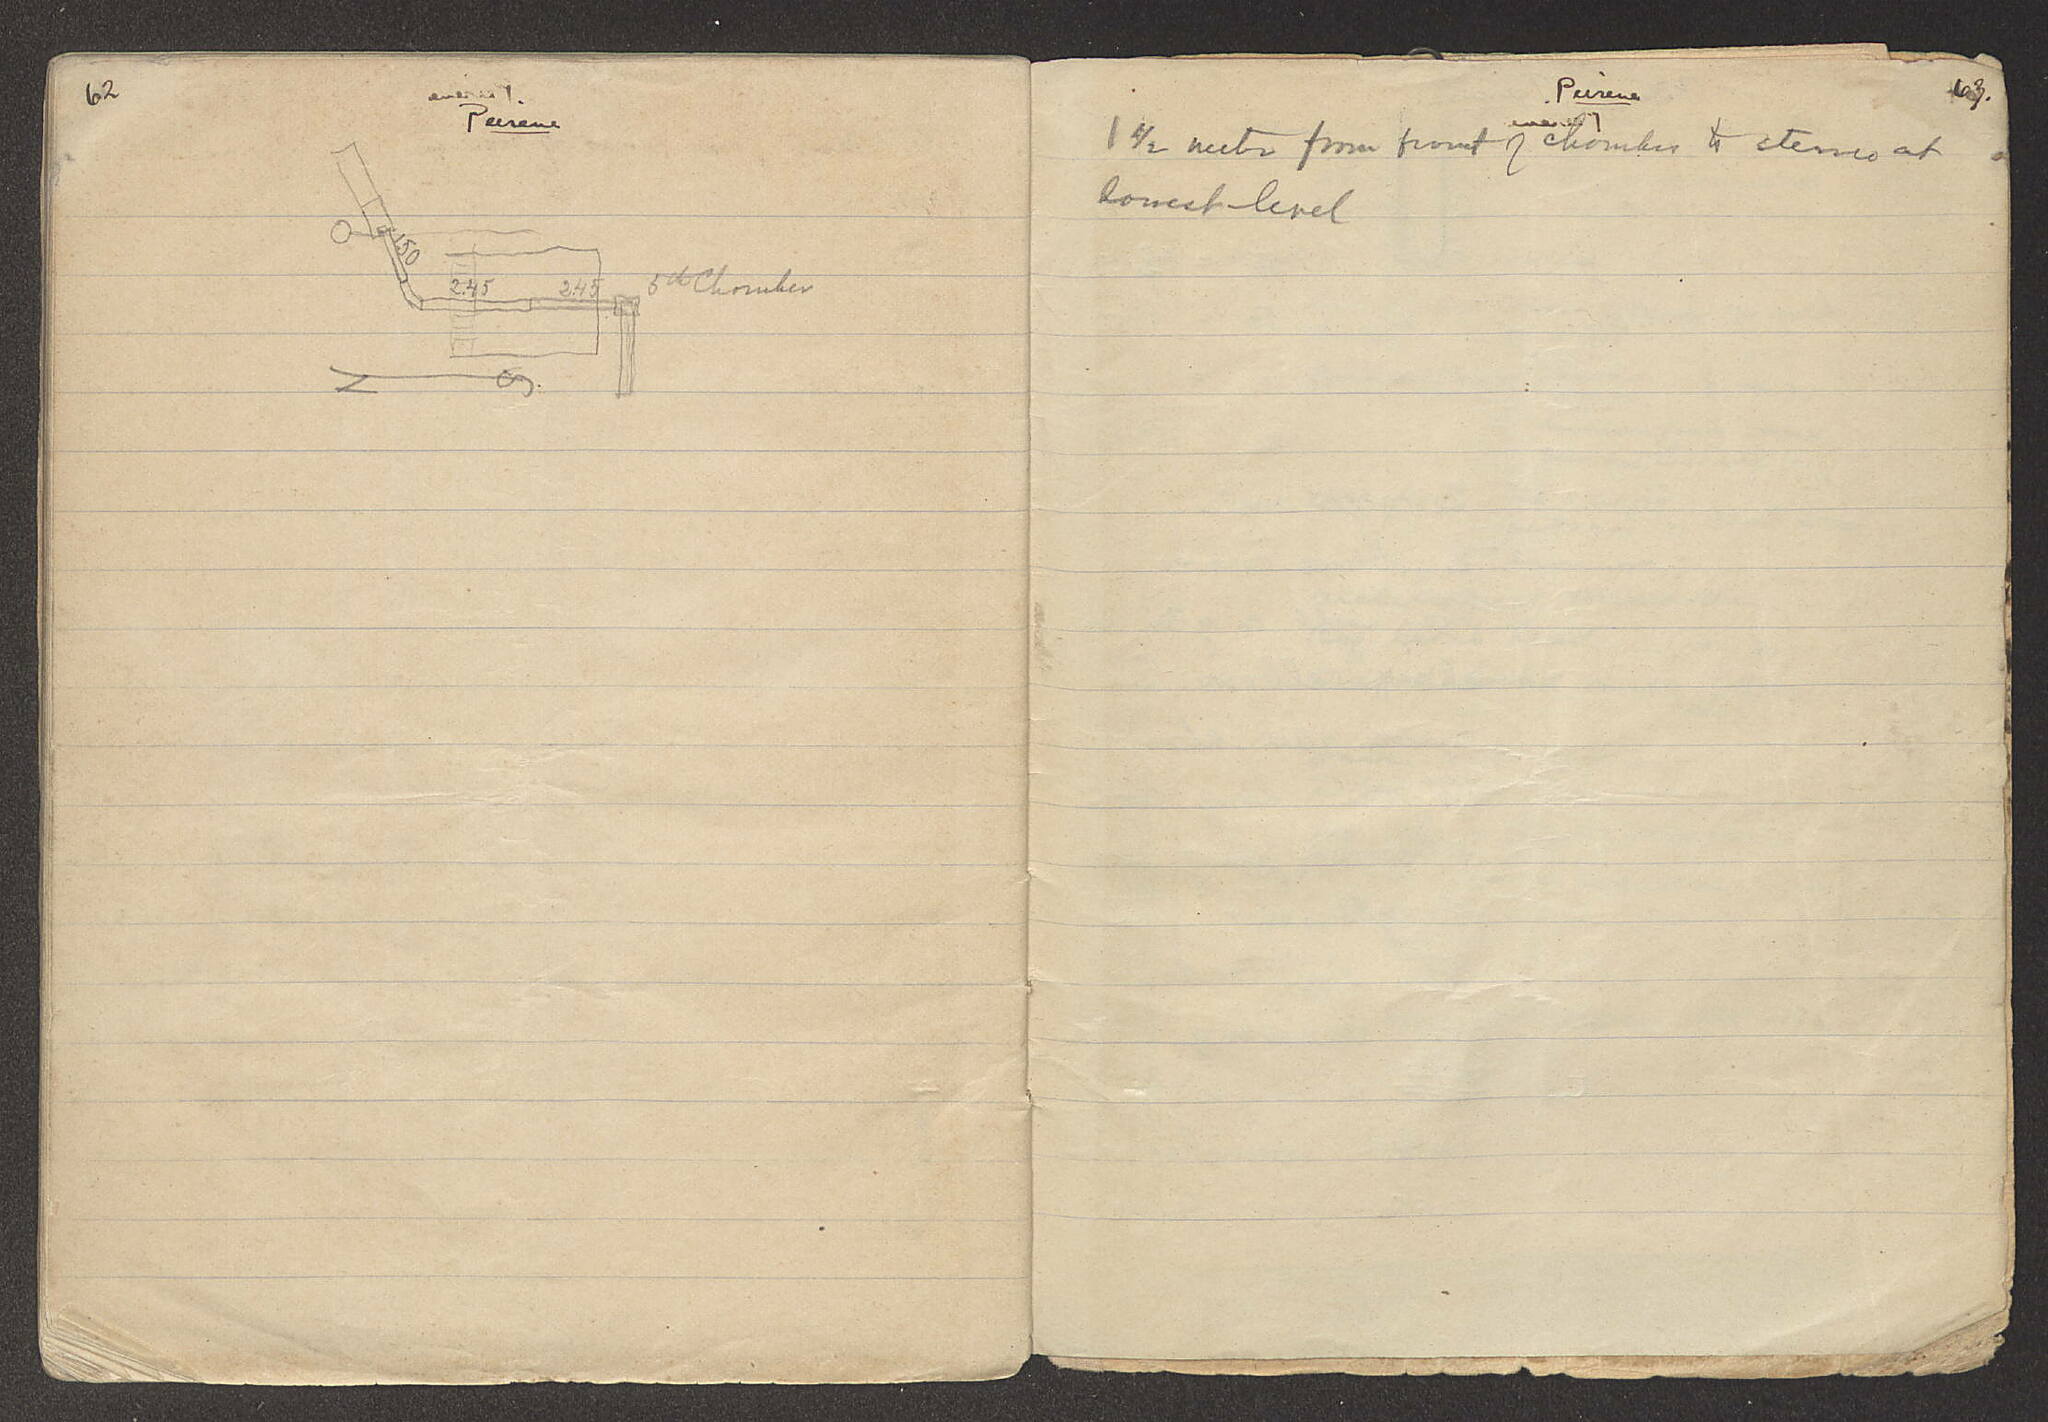 62
Peirene
150
2.45 2.45 5th Chamber
N S
Peirene
63.
1 1/2 meter from front of chamber to at
lowest level